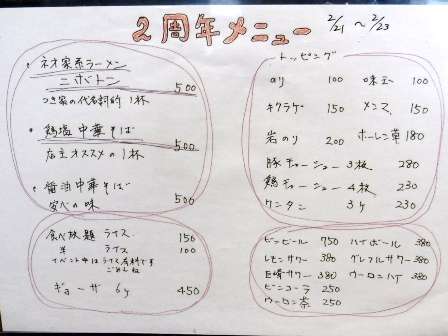 2周年メニュー 2/21 〜 2/23
・ネオ家系ラーメン
ニボトン 500
つき家の代名詞的1杯
・鶏塩中華そば 500
店主オススメの1杯
・醤油中華そば 500
安心の味
食べ放題 ライス 150
半 ライス 100
イベント中はライス有料です
ごめんね
ギョーザ 6ヶ 450
トッピング
のり 100 味玉 100
キクラゲ 150 メンマ 150
岩のり 200 ホーレン草 180
豚チャーシュー 3枚 280
鶏チャーシュー 4枚 230
ワンタン 3ヶ 230
ビンビール 750 ハイボール 380
レモンサワー 380 グレフルサワー 380
巨峰サワー 380 ウーロンハイ 380
ビンコーラ 250
ウーロン茶 250